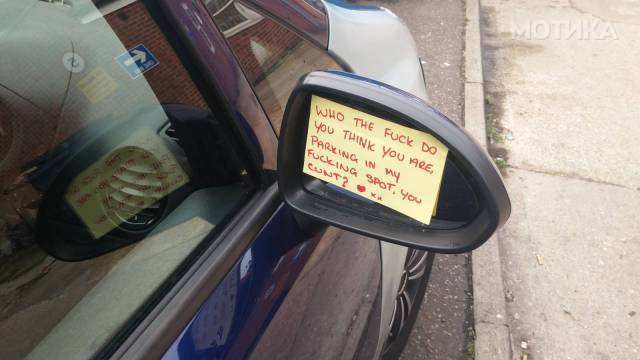 МОТИКА
WHO THE FUCK DO
YOU THINK YOU ARE,
PARKING IN MY
FUCKING SPOT, YOU
CUNT? ❤ xx